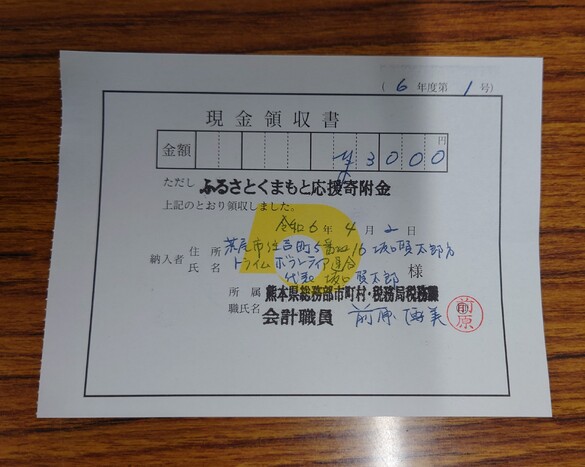 (6年度第1号)
現金領収書
金額 ¥3000円
ただし ふるさとくまもと応援寄附金
上記のとおり領収しました。
令和6年4月2日
納入者 住所 荒尾市住吉町5番地16 坂口賢太郎方
氏名 トライムボランティア連合 様
代表 坂口賢太郎
所属 熊本県総務部市町村・税務局税務課
職氏名 会計職員 前原
前原